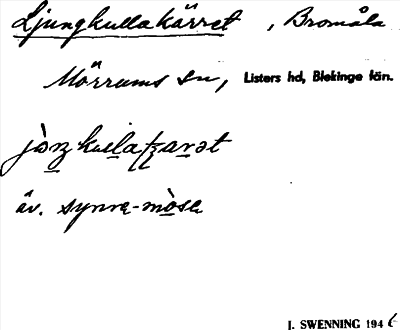 Ljungkullakärret, Bromåla
Mörrums sn, Listers hd, Blekinge län.
jòŋ kulaʈʂarət
äv. synre-mòse
J. SWENNING 1946